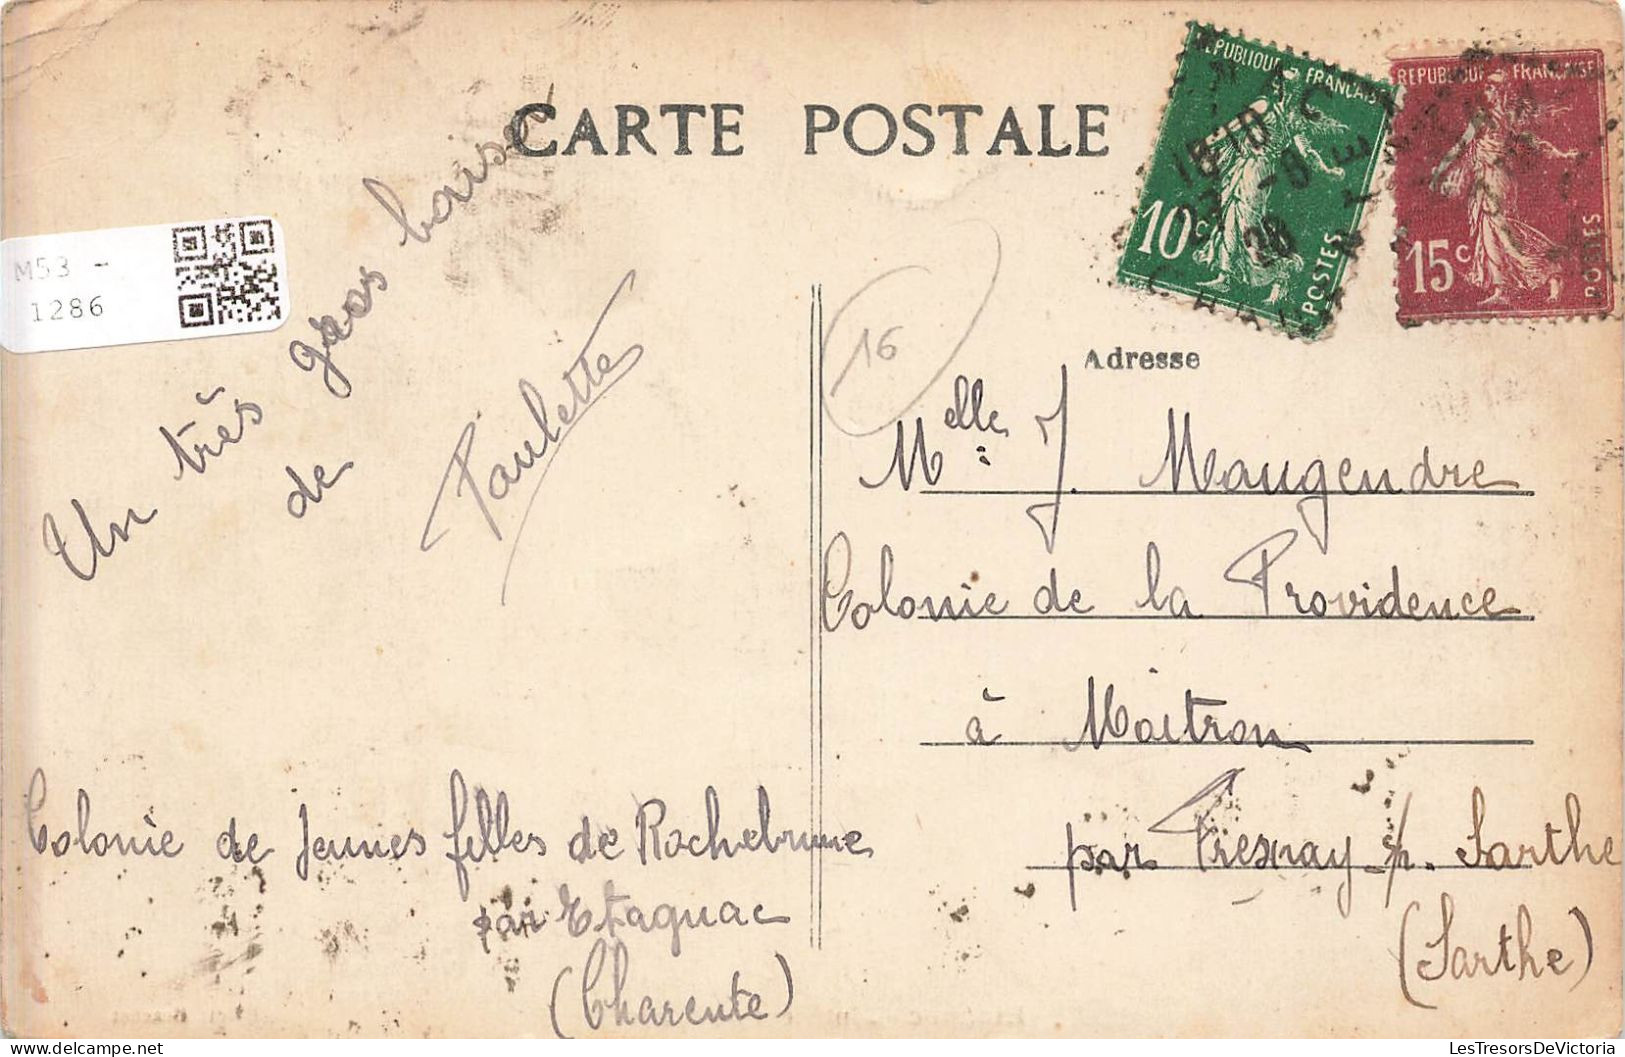 CARTE POSTALE
REPUBLIQUE FRANÇAISE
10c
POSTES
REPUBLIQUE FRANÇAISE
15c
POSTES
18·10
23-8
28
M53 -
1286
16
Un très gros baiser
de
Paulette
Colonie de Jeunes filles de Rochebrune
par Etagnac
(Charente)
Adresse
Melle: J. Maugendre
Colonie de la Providence
à Moitron
par Fresnay s/. Sarthe
(Sarthe)
LesTresorsDeVictoria